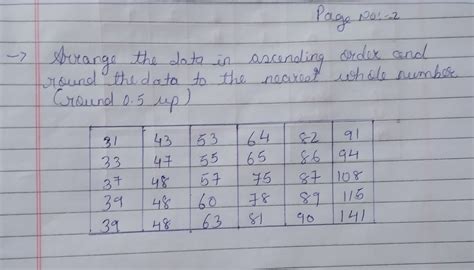 Page No:-2
→ Arrange the data in ascending order and
round the data to the nearest whole number
(round 0.5 up)
31 43 53 64 82 91
33 47 55 65 86 94
37 48 57 75 87 108
39 48 60 78 89 115
39 48 63 81 90 141